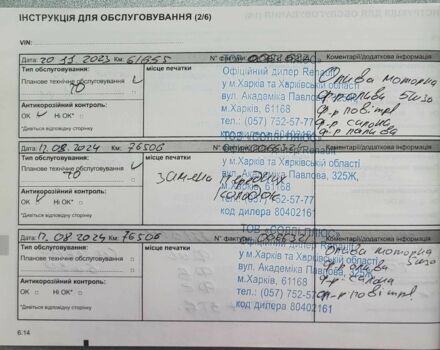 ІНСТРУКЦІЯ ДЛЯ ОБСЛУГОВУВАННЯ (2/6)
VIN:
Дата: 20 11 2023 Км: 61855 N° фактури: Коментарі/додаткова інформація
Тип обслуговування: місце печатки
Планове технічне обслуговування ✓
ТО
Антикорозійний контроль:
ОК ✓ Ні ОК*
*Дивіться відповідну сторінку
Офіційний дилер Renault
у м.Харків та Харківській області
вул. Академіка Павлова,
м.Харків, 61168
тел.: (057) 752-57-77
Олива моторна
5w30
ф-р оливи
ф-р повітр.
ф-р салона
ф-р палива
ТОВ «СОЛЛІ-ПЛЮС»
Дата: 17.08.2024 Км: 76506 N° фактури: Коментарі/додаткова інформація
Тип обслуговування: місце печатки
Планове технічне обслуговування
ТО
Антикорозійний контроль:
ОК ✓ Ні ОК*
*Дивіться відповідну сторінку
заміна передніх колодок
у м.Харків та Харківській області
вул. Академіка Павлова, 325Ж,
м.Харків, 61168
тел.: (057) 752-57-77
код дилера 80402161
ТОВ «СОЛЛІ-ПЛЮС»
Дата: 17.08 2024 Км: 76506 N° фактури: Коментарі/додаткова інформація
Тип обслуговування: місце печатки
Планове технічне обслуговування
Антикорозійний контроль:
ОК Ні ОК*
*Дивіться відповідну сторінку
у м.Харків та Харківській області
вул. Академіка Павлова, 325Ж
м.Харків, 61168
тел.: (057) 752-57-77
код дилера 80402161
Олива моторна
5w30
ф-р олива
ф-р салона
ф-р повітр.
6.14